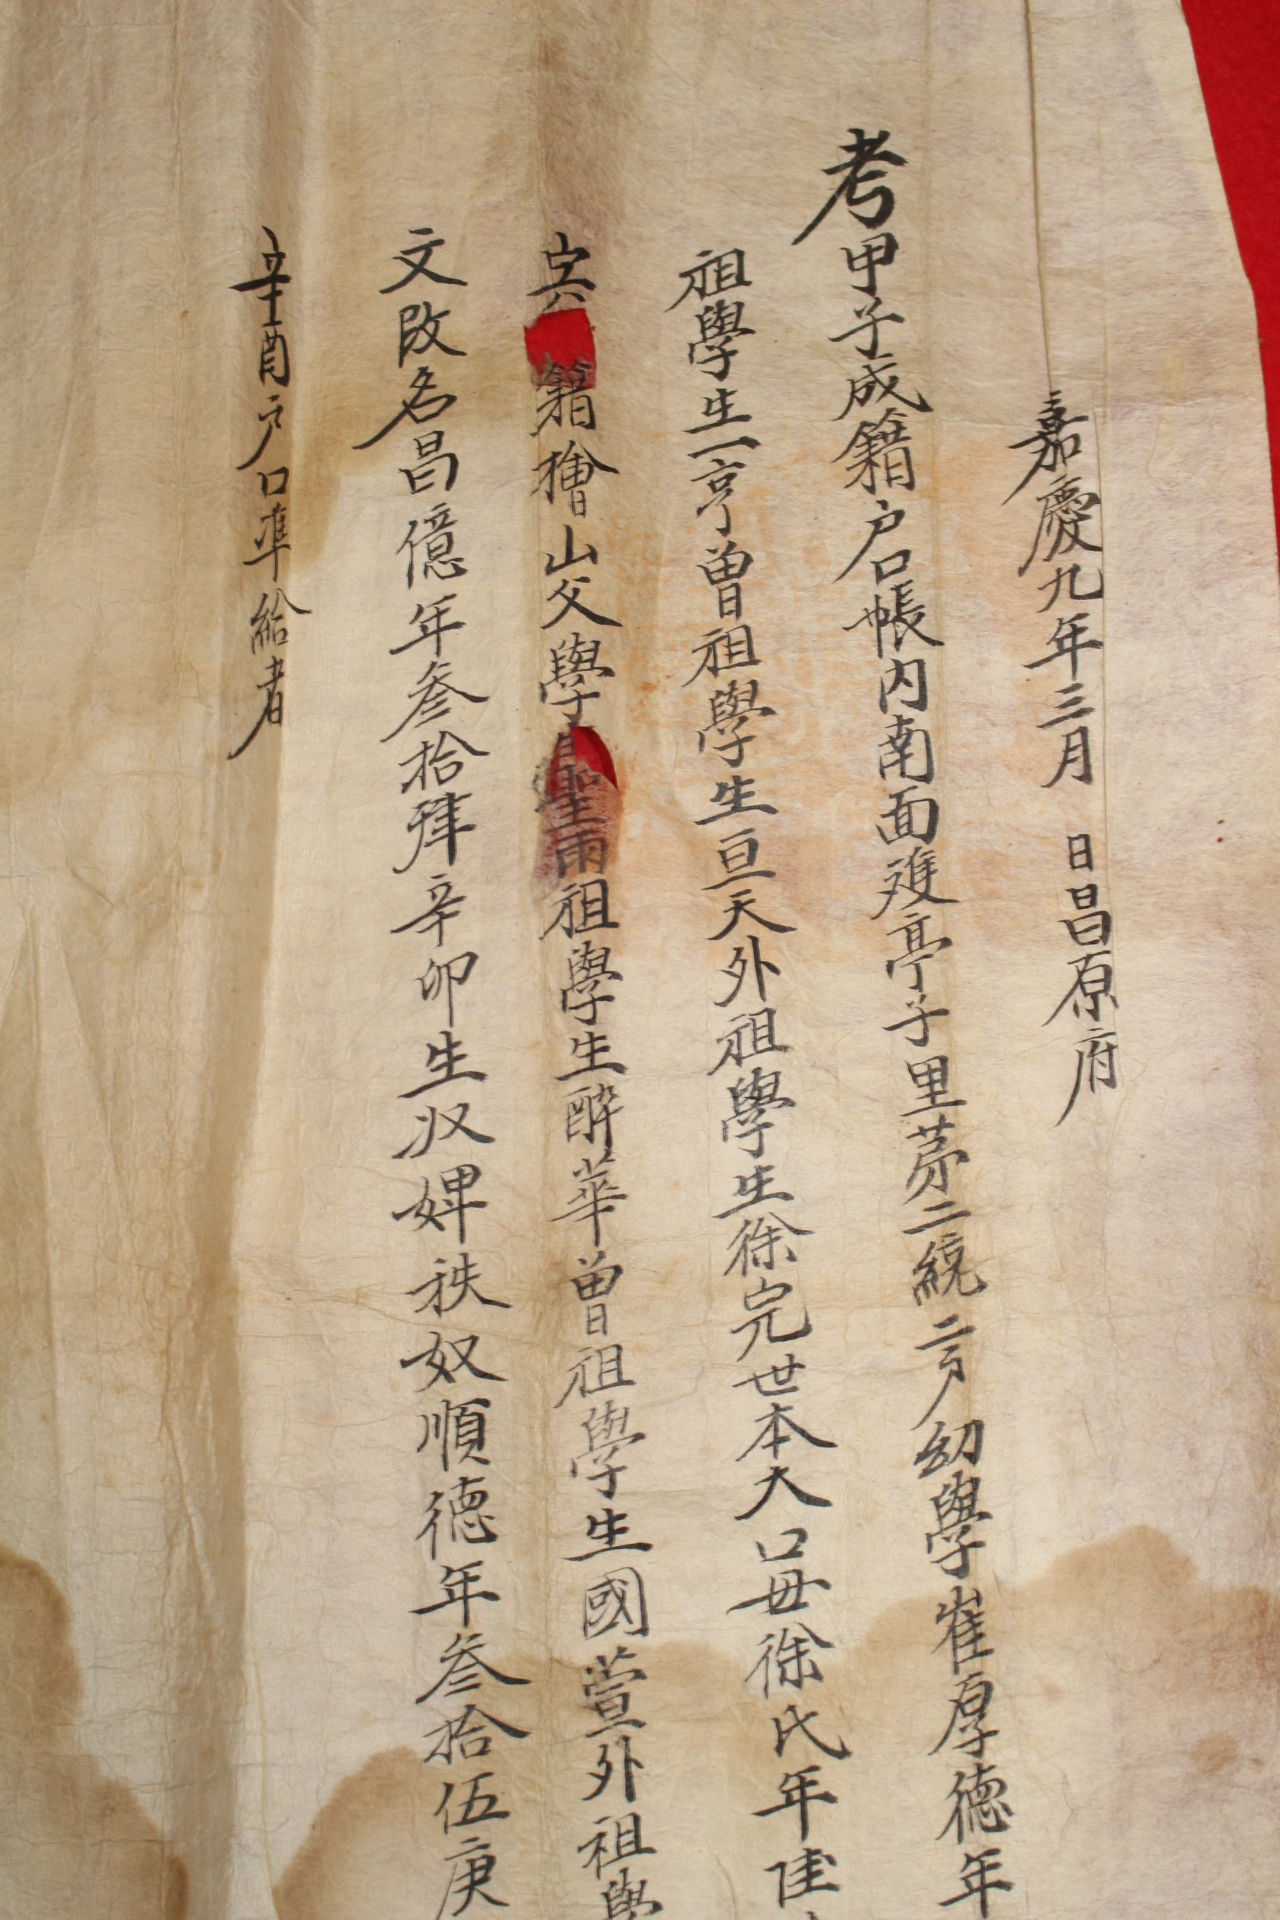 嘉慶九年三月 日昌原府
考甲子成籍户口帳内南面 亭子里苐二統二户幼學崔厚德年
祖學生一亨曽祖學生亘天外祖學生徐完世本大口母徐氏年
籍檜山父學 聖雨祖學生酔華曽祖學生國萱外祖學
文改名昌億年叁拾肆辛卯生奴婢秩奴順德年叁拾伍庚
辛酉户口凖給者